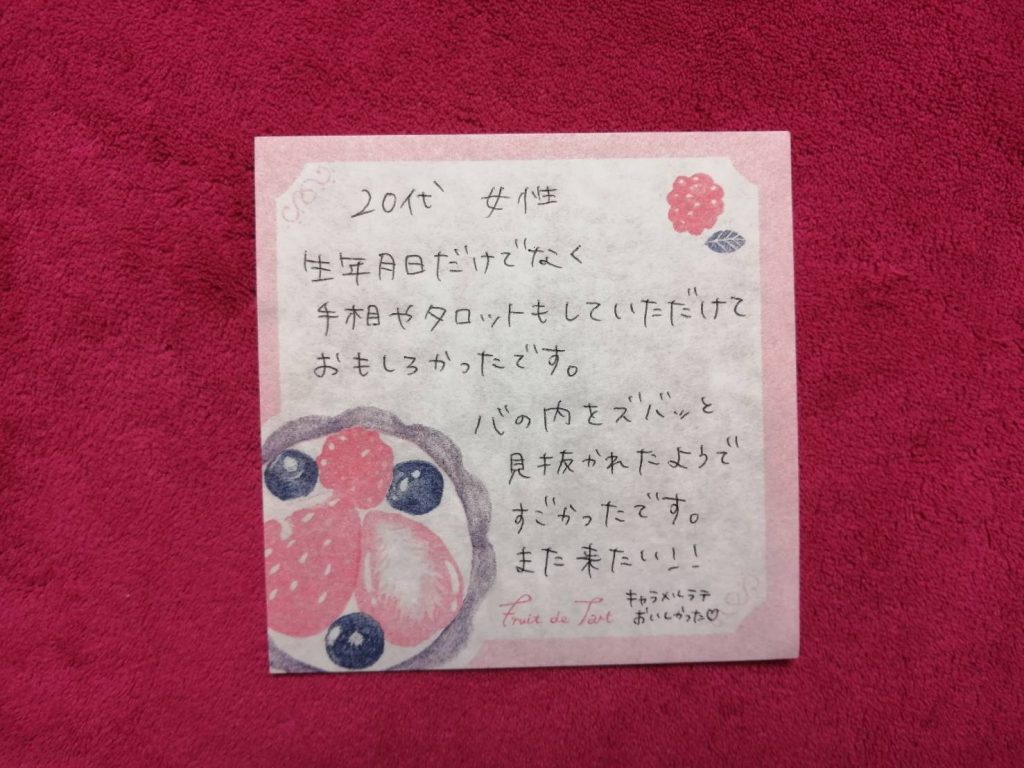 20代 女性
生年月日だけでなく
手相やタロットもしていただけて
おもしろかったです。
心の内をズバッと
見抜かれたようで
すごかったです。
また来たい!!
Fruit de Tart
キャラメルラテ
おいしかった♡